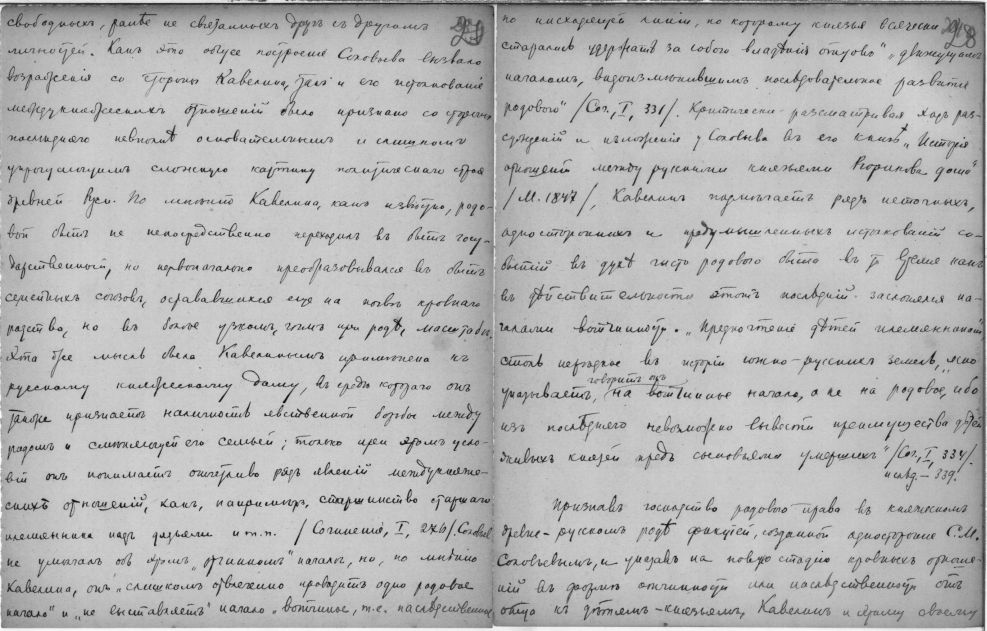 свободныхъ, ранѣе не связанныхъ другъ съ другомъ
личностей. Какъ это общее построеніе Соловьева вызвало
возраженія со стороны Кавелина, такъ и его истолкованіе
междукняжескихъ отношеній было признано со стороны
послѣдняго невполнѣ основательнымъ и слишкомъ
упрощающимъ сложную картину политическаго строя
древней Руси. По мнѣнію Кавелина, какъ извѣстно, родо-
вой бытъ не непосредственно переходилъ въ бытъ госу-
дарственный, но первоначально преобразовывался въ бытъ
семейныхъ союзовъ, остававшихся еще на почвѣ кровнаго
родства, но въ болѣе узкомъ, чѣмъ при родѣ, масштабѣ.
Эта же мысль была Кавелинымъ примѣнена къ
русскому княжескому дому, въ средѣ котораго онъ
также признаетъ наличность явственной борьбы между
родомъ и смѣняющей его семьей; только при этомъ усло-
віи онъ понимаетъ отчетливо рядъ явленій междукняже-
скихъ отношеній, какъ, напримѣръ, старшинство старшаго
племянника надъ дядьями и т.п. /Сочиненія, I, 276/. Соловьев
не умолчалъ объ этомъ „отчинномъ" началѣ, но, по мнѣнію
Кавелина, онъ „слишкомъ отвлеченно проводитъ одно родовое
начало" и „не выставляетъ" начало „вотчинное, т.е. наслѣдственное
по нисходящей линіи, по которому князья всячески
старались удержать за собою владѣнія отцовъ" „движущимъ
началомъ, видоизмѣнившимъ послѣдовательное развитіе
родового" /Соч., I, 331/. Критически разсматривая ходъ раз-
сужденій и изложенія у Соловьева въ его книгѣ „Исторія
отношеній между русскими князьями Рюрикова дома"
/М. 1847/, Кавелинъ подмѣчаетъ рядъ неточныхъ,
одностороннихъ и предумышленныхъ истолкованій со-
бытій въ духѣ чисто родового быта въ то время какъ
въ дѣйствительности этотъ послѣдній заслонялся на-
чалами вотчинности. „Предпочтеніе дѣтей племянникамъ,
столь нерѣдкое въ исторіи южно-русскихъ земель, ясно
указываетъ, говоритъ онъ, на вотчинное начало, а не на родовое, ибо
изъ послѣдняго невозможно вывести преимущества дѣтей
живыхъ князей предъ сыновьями умершихъ" /Соч., I, 334/.
и слѣд. – 339.
Признавъ господство родового права въ княжескомъ
древне-русскомъ родѣ фикціей, созданной односторонне С.М.
Соловьевымъ, и указавъ на новую стадію кровныхъ отноше-
ній въ формѣ отчинности или наслѣдственности отъ
отца къ дѣтямъ-князьямъ, Кавелинъ и этому своему